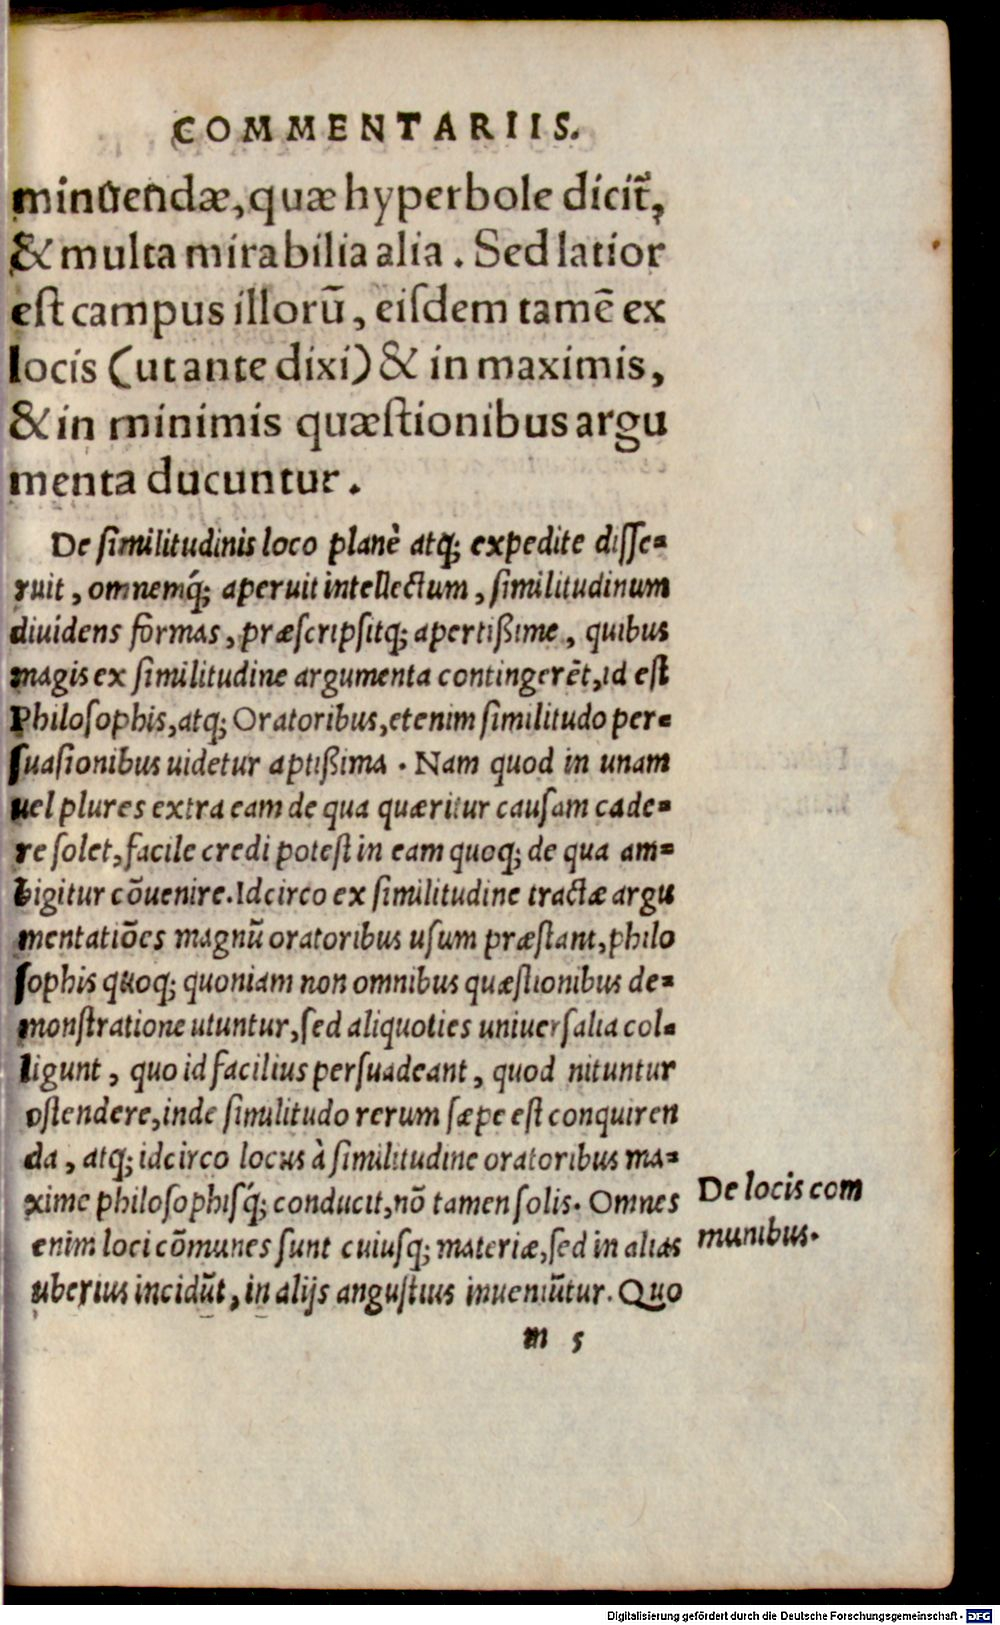 COMMENTARIIS.
minuendæ, quæ hyperbole dicit᷑,
& multa mirabilia alia. Sed latior
est campus illorū, eiſdem tamē ex
locis (ut ante dixi) & in maximis,
& in minimis quæſtionibus argu
menta ducuntur.
De ſimilitudinis loco planè atq; expedite diſſe-
ruit, omnemq́; aperuit intellectum, ſimilitudinum
diuidens formas, præſcripſitq; apertißime, quibus
magis ex ſimilitudine argumenta contingerēt, id eſt
Philoſophis, atq; Oratoribus, etenim ſimilitudo per-
ſuaſionibus uidetur aptißima. Nam quod in unam
uel plures extra eam de qua quæritur cauſam cade-
re ſolet, facile credi poteſt in eam quoq; de qua am-
bigitur cōuenire. Idcirco ex ſimilitudine tractæ argu
mentatiōes magnū oratoribus uſum præſtant, philo
ſophis quoq; quoniam non omnibus quæſtionibus de-
monſtratione utuntur, ſed aliquoties uniuerſalia col-
ligunt, quo id facilius perſuadeant, quod nituntur
oſtendere, inde ſimilitudo rerum ſæpe eſt conquiren
da, atq; idcirco locus à ſimilitudine oratoribus ma-
xime philoſophiſq́; conducit, nō tamen ſolis. Omnes
enim loci cōmunes ſunt cuiuſq; materiæ, ſed in alias
uberius incidūt, in alijs anguſtius inueniūtur. Quo
De locis com
munibus.
m 5
Digitalisierung gefördert durch die Deutsche Forschungsgemeinschaft - DFG